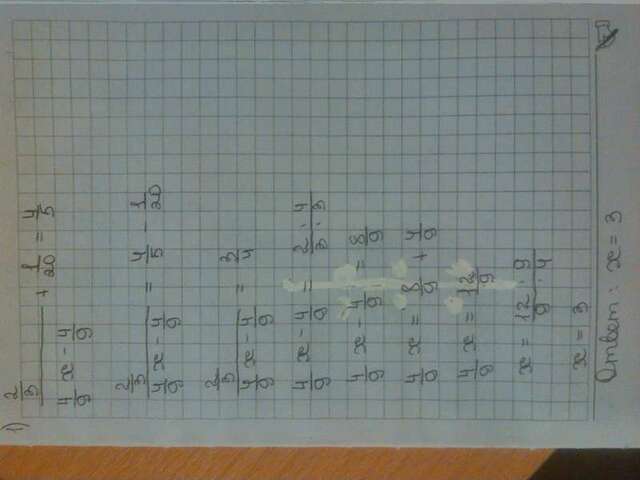 1) \frac{\frac{2}{3}}{\frac{4}{9}x - \frac{4}{9}} + \frac{1}{20} = \frac{4}{5}
\frac{\frac{2}{3}}{\frac{4}{9}x - \frac{4}{9}} = \frac{4}{5} - \frac{1}{20}
\frac{\frac{2}{3}}{\frac{4}{9}x - \frac{4}{9}} = \frac{3}{4}
\frac{4}{9}x - \frac{4}{9} = \frac{2 \cdot 4}{3 \cdot 3}
\frac{4}{9}x - \frac{4}{9} = \frac{8}{9}
\frac{4}{9}x = \frac{8}{9} + \frac{4}{9}
\frac{4}{9}x = \frac{12}{9}
x = \frac{12 \cdot 9}{9 \cdot 4}
x = 3
Ответ: x = 3